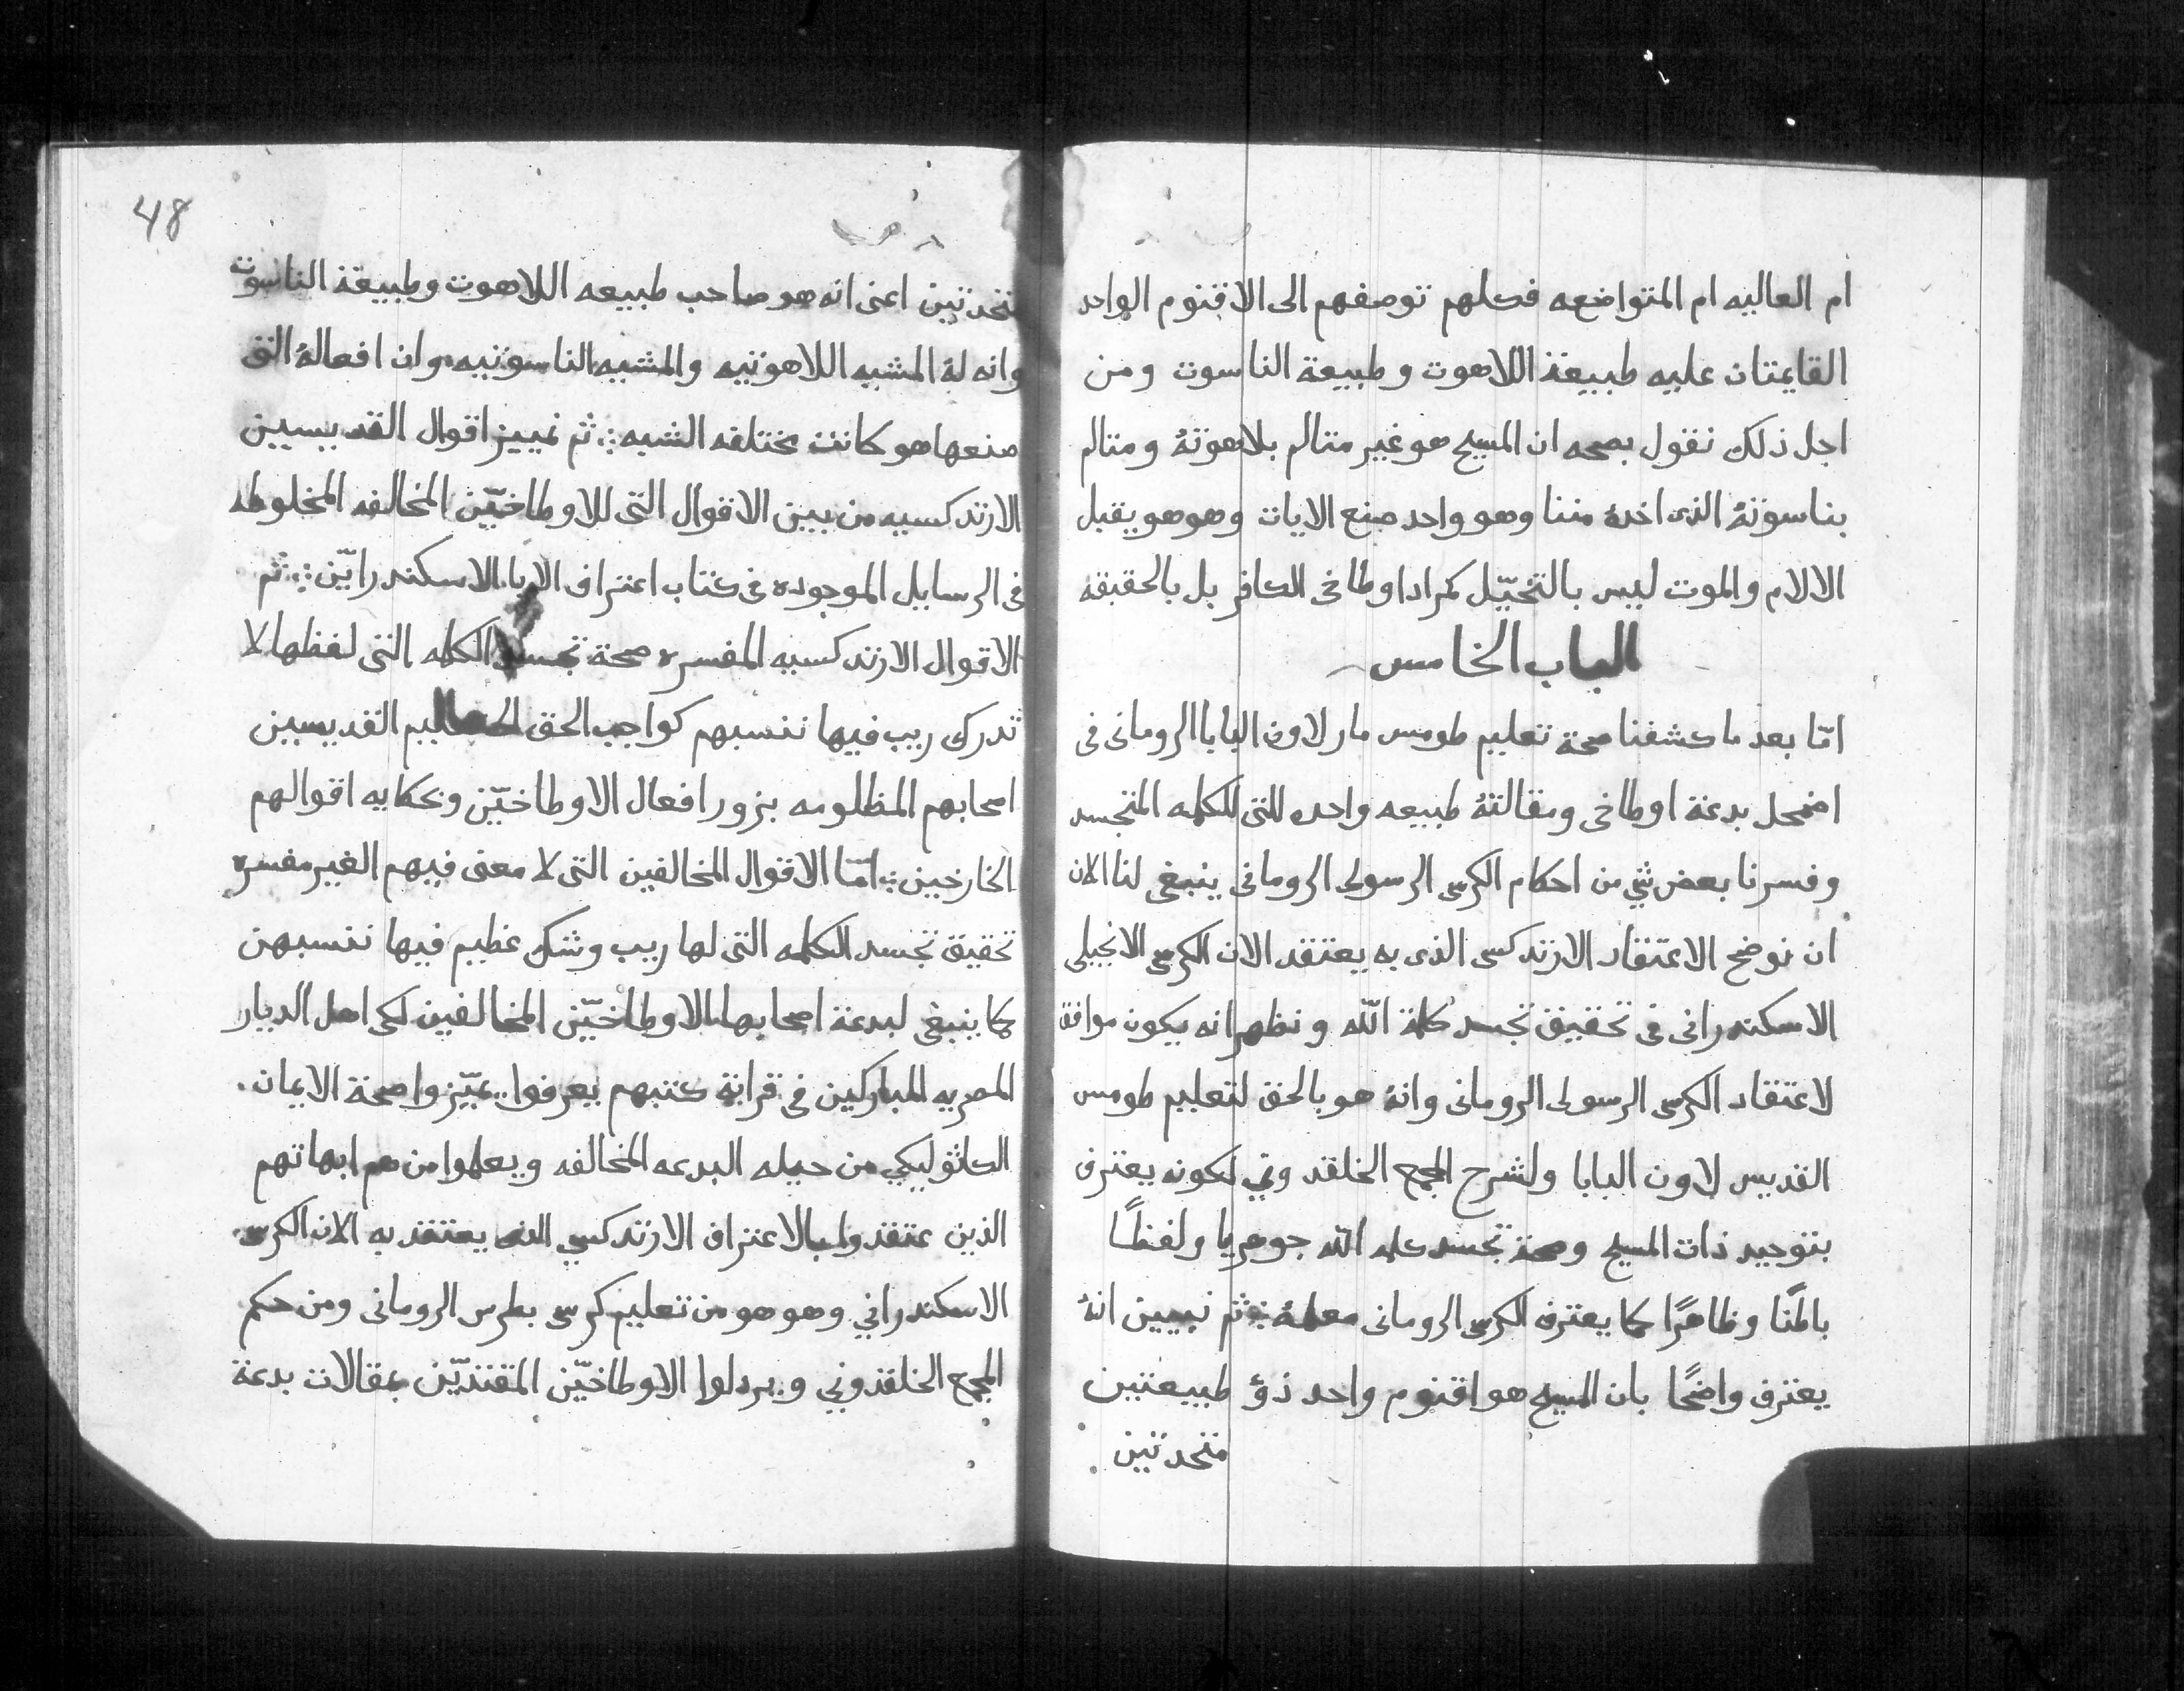 ام العاليه ام المتواضعه فكلهم توصفهم الى الاقنوم الواحد
القايمتان عليه طبيعة اللاهوت وطبيعة الناسوت ومن
اجل ذلك نقول بصحه ان المسيح هو غير متالم بلاهوتهُ ومتالم
بناسوتهُ الذى اخدهُ مننا وهو واحد صنع الايات وهو هو يقبل
الالام والموت ليس بالتخيّل كمراد اوطاخى الكافر بل بالحقيقه
الباب الخامس
امّا بعد ما كشفنا صحة تعليم طومس مار لاون البابا الرومانى فى
اضمحل بدعة اوطاخى ومقالتهُ طبيعه واحده للتى للكلمه المتجسد
وفسرنا بعض شي من احكام الكرسى الرسولى الرومانى ينبغى لنا الان
ان نوضح الاعتقاد الارتدكسى الذى به يعتقد الان الكرسى الانجيلى
الاسكندرانى فى تحقيق تجسد كلمة اللّه ونظهر انه يكون موافق
لاعتقاد الكرسى الرسولى الرومانى وانهُ هو بالحق لتعليم طومس
القديس لاون البابا ولشرح المجمع الخلقدوني لكونه يعترف
بتوحيد ذات المسيح وصحة تجسد كلمه اللّه جوهريا ولفظًا
باطنًا وظاهرًا كما يعترف الكرسى الرومانى معلمهُ ثم نبيين انهُ
يعترف واضحًا بان المسيح هو اقنوم واحد ذوُ طبيعتين
متحدتين
48
متحدتين اعنى انه هو صاحب طبيعه اللاهوت وطبيعة الناسوت
وانه لهُ المشيه اللاهوتيه والمشيه الناسوتيه وان افعالهُ التى
صنعها هو كانت مختلفه الشبه ثم نمييز اقوال القديسيين
الارتدكسيه من بين الاقوال التى للاوطاخيّين المخالفه المخلوطه
فى الرسايل الموجوده فى كتاب اعتراف الابا الاسكندرايّين ثم
الاقوال الارتدكسيه المفسره صحة تجسد الكلمه التى لفظها لا
تدرك ريب فيها ننسبهم كواجب الحق القديسين
اصحابهم المظلومه بزور افعال الاوطاخيّين وبحكايه اقوالهم
الخارجين امّا الاقوال المخالفين التى لا معنى فيهم الغير مفسره
تحقيق تجسد الكلمه التى لها ريب وشك عظيم فيها ننسبهن
كما ينبغى لبدعة اصحابها الاوطاخيّين المخالفين لكى اهل الديار
المصريه المباركين فى قراية كتبهم يعرفوا يميّزوا صحة الايمان
الكاثوليكي من حيله البدعه المخالفه ويعلموا من هم ابهاتهم
الذين عتقدوا بالاعتراف الارتدكسي الذى يعتقد به الان الكرسى
الاسكندراني وهو هو من تعليم كرسى بطرس الرومانى ومن حكم
المجمع الخلقدوني و يردلوا الاوطاخيّين المقتدّيين بمقالات بدعة